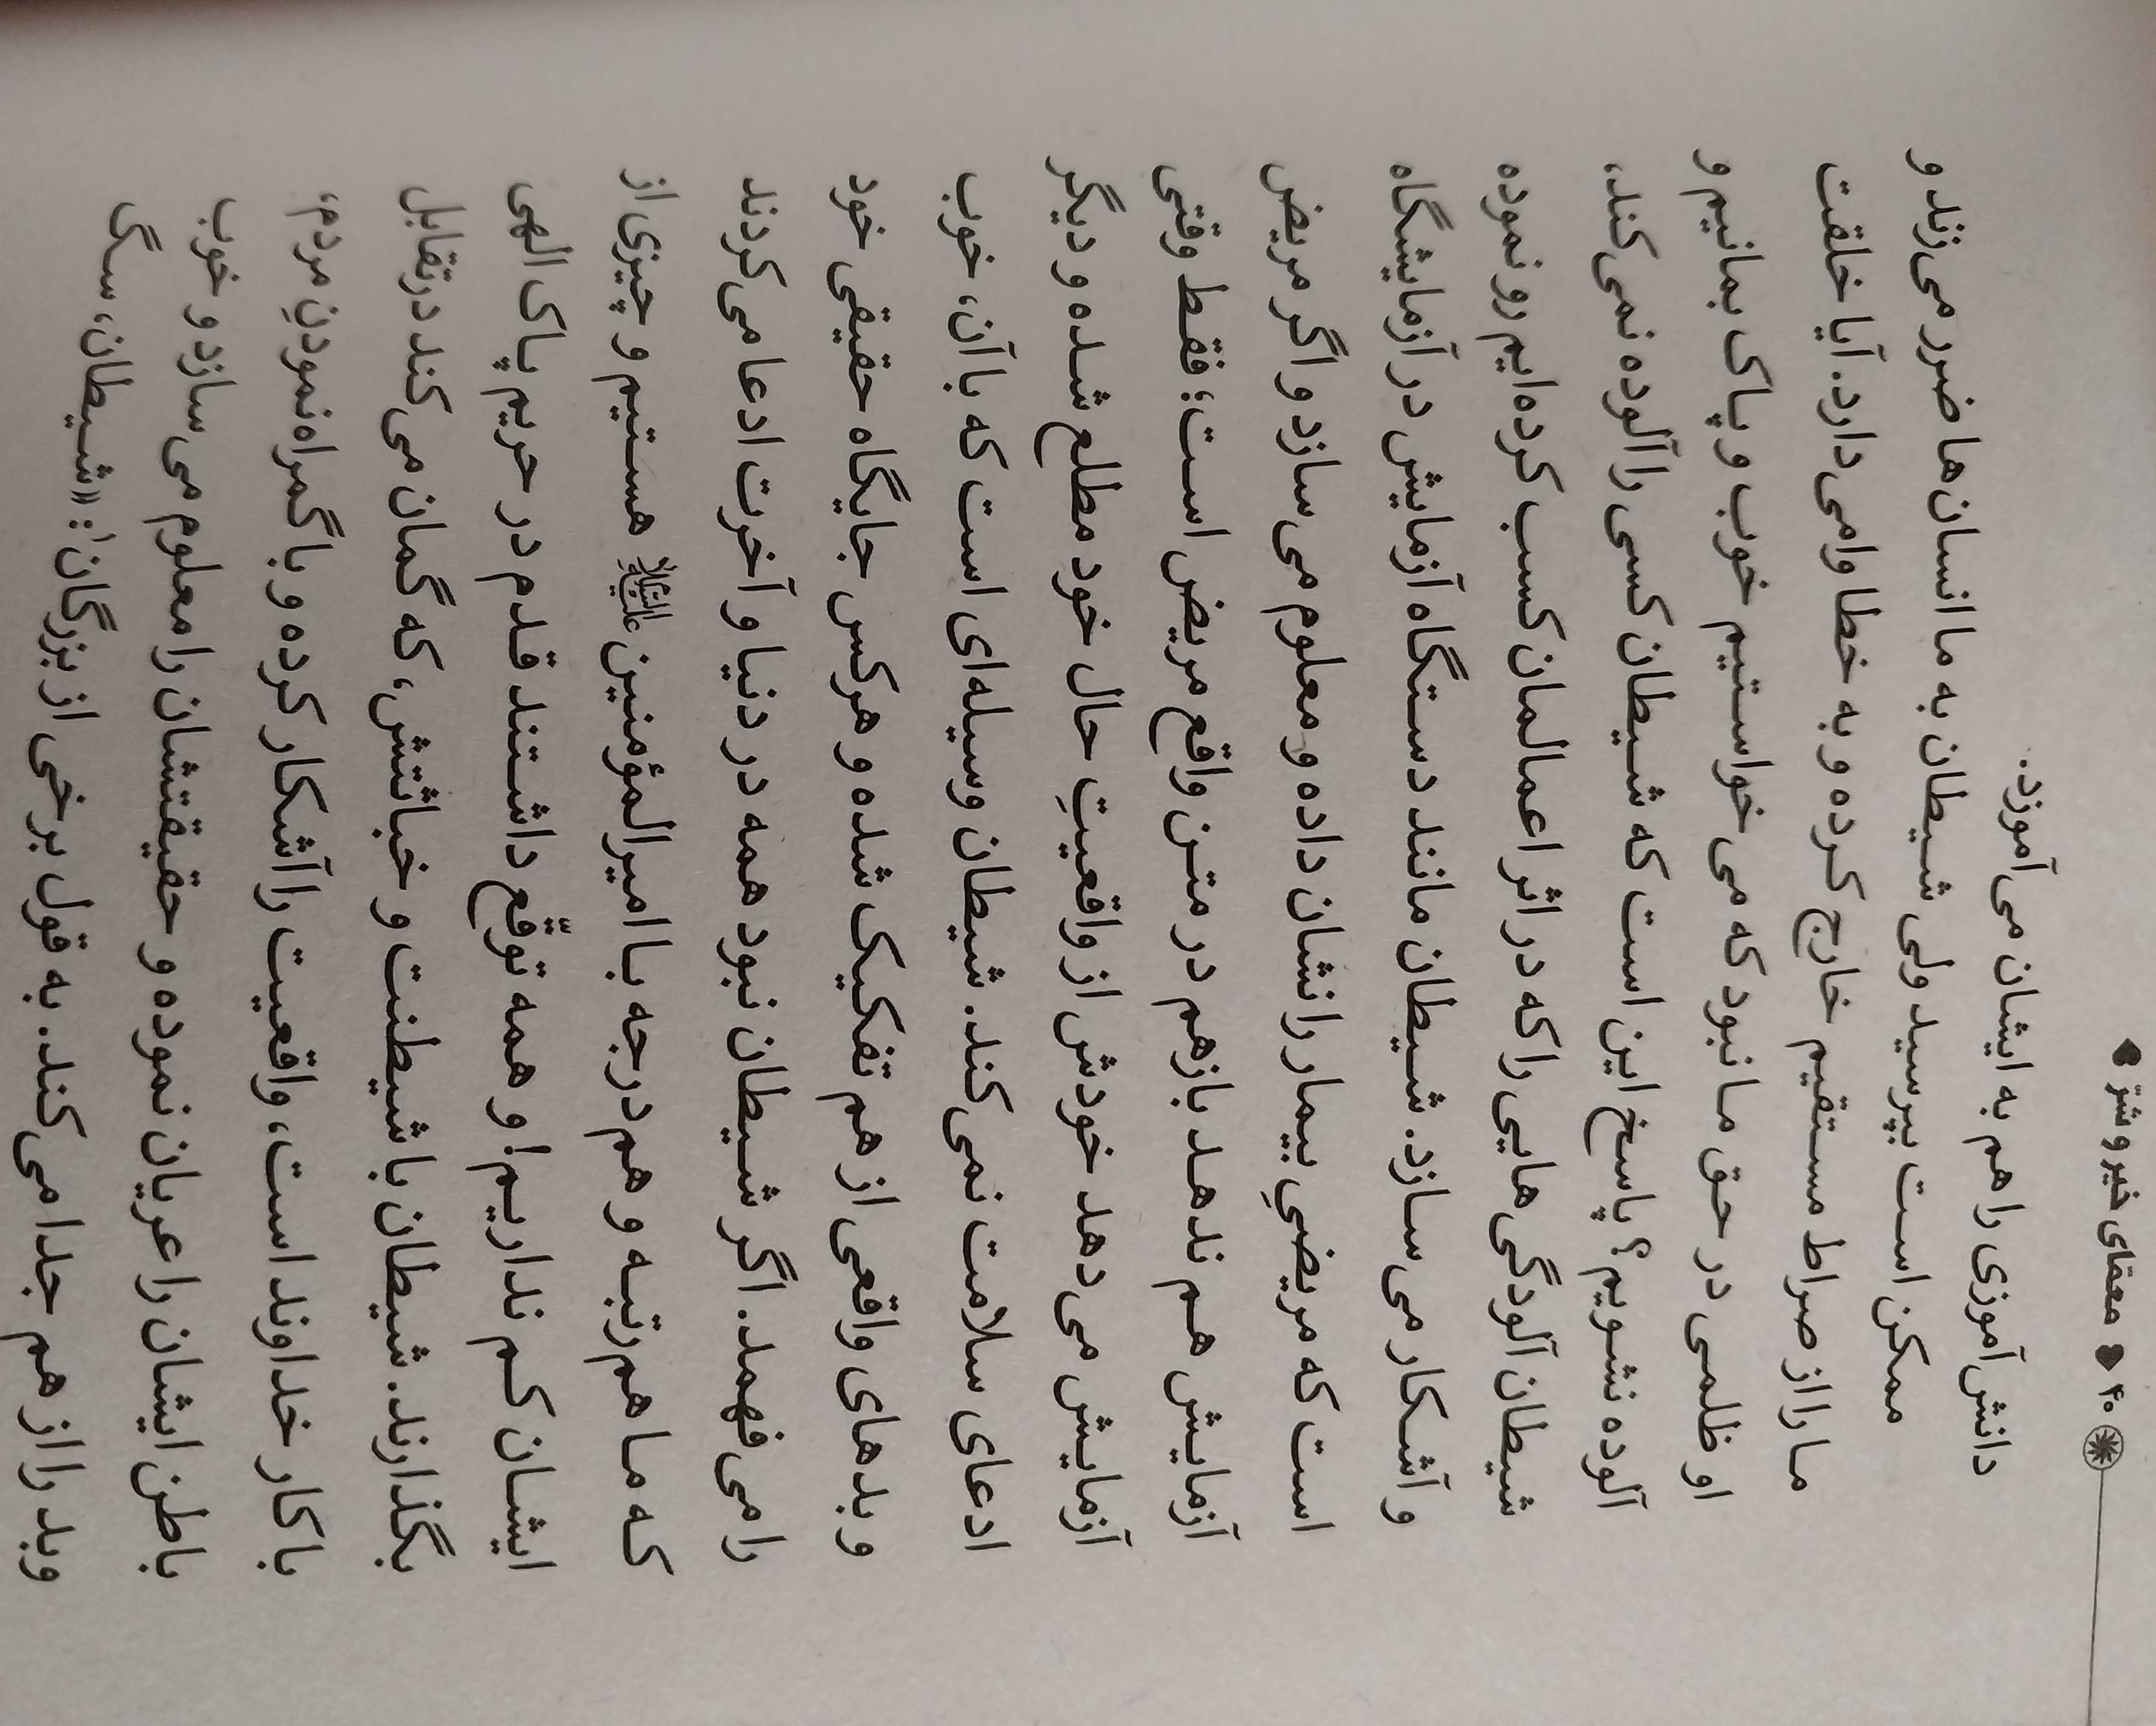 ۴۰ ♦ معمّای خیر و شرّ ♦
دانش‌آموزی را هم به ایشان می‌آموزد.
ممکن است بپرسید ولی شیطان به ما انسان‌ها ضرر می‌زند و
ما را از صراط مستقیم خارج کرده و به خطا وامی‌دارد. آیا خلقت
او ظلمی در حق ما نبود که می‌خواستیم خوب و پاک بمانیم و
آلوده نشویم؟ پاسخ این است که شیطان کسی را آلوده نمی‌کند،
شیطان آلودگی‌هایی را که در اثر اعمالمان کسب کرده‌ایم رو نموده
و آشکار می‌سازد. شیطان مانند دستگاه آزمایش در آزمایشگاه
است که مریضیِ بیمار را نشان داده و معلوم می‌سازد و اگر مریض
آزمایش هم ندهد بازهم در متن واقع مریض است؛ فقط وقتی
آزمایش می‌دهد خودش از واقعیتِ حال خود مطلع شده و دیگر
ادعای سلامت نمی‌کند. شیطان وسیله‌ای است که با آن، خوب
و بدهای واقعی از هم تفکیک شده و هرکس جایگاه حقیقی خود
را می‌فهمد. اگر شیطان نبود همه در دنیا و آخرت ادعا می‌کردند
که ما هم‌رتبه و هم‌درجه با امیرالمؤمنین علیه‌السلام هستیم و چیزی از
ایشان کم نداریم! و همه توقّع داشتند قدم در حریم پاک الهی
بگذارند. شیطان با شیطنت و خباثتش، که گمان می‌کند در تقابل
با کار خداوند است، واقعیت را آشکار کرده و با گمراه نمودنِ مردم،
باطن ایشان را عریان نموده و حقیقتشان را معلوم می‌سازد و خوب
و بد را از هم جدا می‌کند. به قول برخی از بزرگان۱: «شیطان، سگ